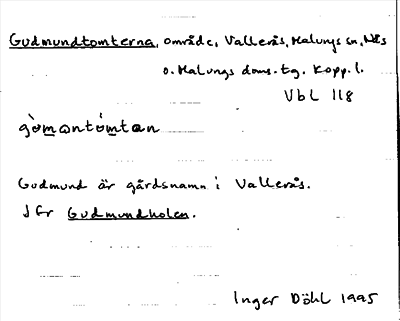 Gudmundtomterna, område, Vallerås, Malungs sn, Nås
o. Malungs doms.tg. Kopp. l.
VbL 118
gò̱mantómtan
Gudmund är gårdsnamn i Vallerås.
Jfr Gudmundholen.
Inger Döhl 1995